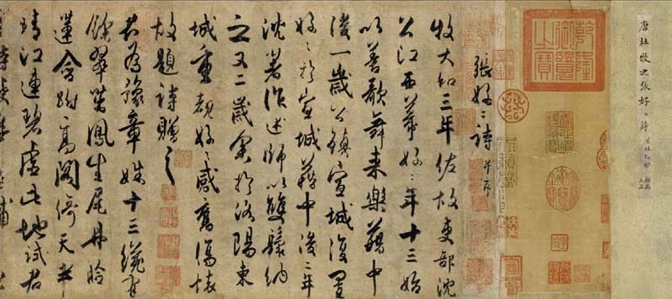 唐杜牧之張好〻詩
乾隆御覽之寶
張好〻詩并序
牧大和三年佐故吏部沈
公江西幕好〻年十三始
以善歌舞來樂籍中
後一歲公鎮宣城復置
好〻於宣城籍中後二年
沈著作述師以雙鬟納
之又二歲余於洛陽東
城重覩好〻感舊傷懷
故題詩贈之
君為豫章姝十三纔有
餘翠茁鳳生尾丹臉
蓮含跗高閣倚天半
晴江連碧虛此地試君